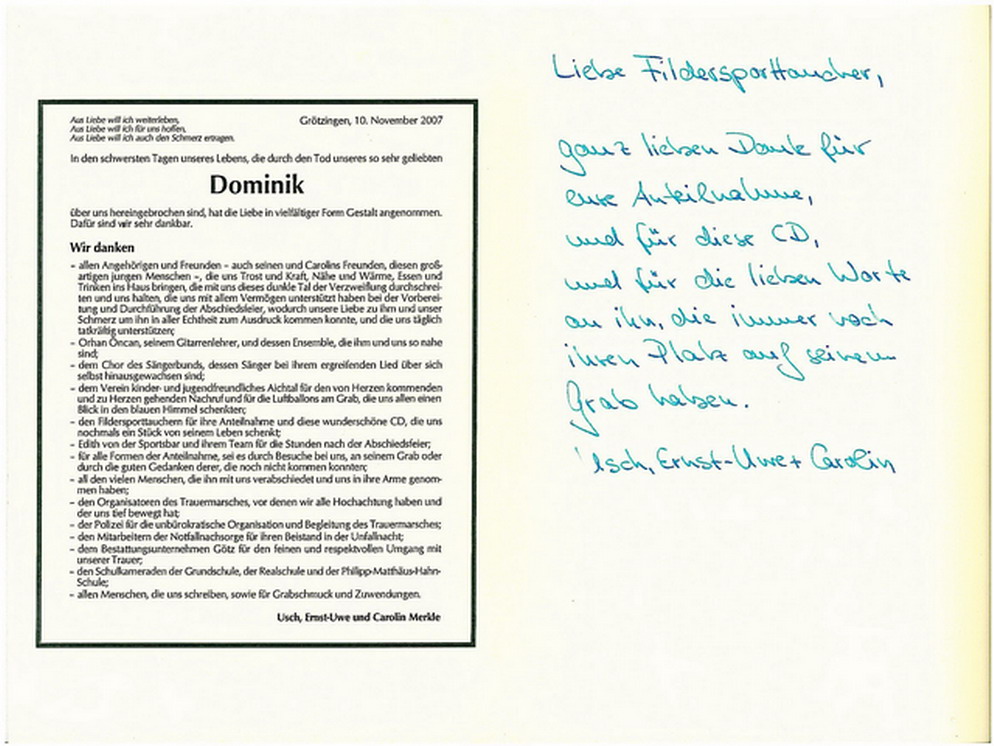 Aus Liebe will ich weiterleben,
Aus Liebe will ich für uns hoffen,
Aus Liebe will ich auch den Schmerz ertragen.
Grötzingen, 10. November 2007
In den schwersten Tagen unseres Lebens, die durch den Tod unseres so sehr geliebten
Dominik
über uns hereingebrochen sind, hat die Liebe in vielfältiger Form Gestalt angenommen.
Dafür sind wir sehr dankbar.
Wir danken
– allen Angehörigen und Freunden – auch seinen und Carolins Freunden, diesen groß-
artigen jungen Menschen –, die uns Trost und Kraft, Nähe und Wärme, Essen und
Trinken ins Haus bringen, die mit uns dieses dunkle Tal der Verzweiflung durchschrei-
ten und uns halten, die uns mit allem Vermögen unterstützt haben bei der Vorberei-
tung und Durchführung der Abschiedsfeier, wodurch unsere Liebe zu ihm und unser
Schmerz um ihn in aller Echtheit zum Ausdruck kommen konnte, und die uns täglich
tatkräftig unterstützen;
– Orhan Öncan, seinem Gitarrenlehrer, und dessen Ensemble, die ihm und uns so nahe
sind;
– dem Chor des Sängerbunds, dessen Sänger bei ihrem ergreifenden Lied über sich
selbst hinausgewachsen sind;
– dem Verein kinder- und jugendfreundliches Aichtal für den von Herzen kommenden
und zu Herzen gehenden Nachruf und für die Luftballons am Grab, die uns allen einen
Blick in den blauen Himmel schenkten;
– den Fildersporttauchern für ihre Anteilnahme und diese wunderschöne CD, die uns
nochmals ein Stück von seinem Leben schenkt;
– Edith von der Sportsbar und ihrem Team für die Stunden nach der Abschiedsfeier;
– für alle Formen der Anteilnahme, sei es durch Besuche bei uns, an seinem Grab oder
durch die guten Gedanken derer, die noch nicht kommen konnten;
– all den vielen Menschen, die ihn mit uns verabschiedet und uns in ihre Arme genom-
men haben;
– den Organisatoren des Trauermarsches, vor denen wir alle Hochachtung haben und
der uns tief bewegt hat;
– der Polizei für die unbürokratische Organisation und Begleitung des Trauermarsches;
– den Mitarbeitern der Notfallnachsorge für ihren Beistand in der Unfallnacht;
– dem Bestattungsunternehmen Götz für den feinen und respektvollen Umgang mit
unserer Trauer;
– den Schulkameraden der Grundschule, der Realschule und der Philipp-Matthäus-Hahn-
Schule;
– allen Menschen, die uns schreiben, sowie für Grabschmuck und Zuwendungen.
Usch, Ernst-Uwe und Carolin Merkle
Liebe Fildersporttaucher,
ganz lieben Dank für
eure Anteilnahme,
und für diese CD,
und für die lieben Worte
an ihn, die immer noch
ihren Platz auf seinem
Grab haben.
Usch, Ernst-Uwe + Carolin